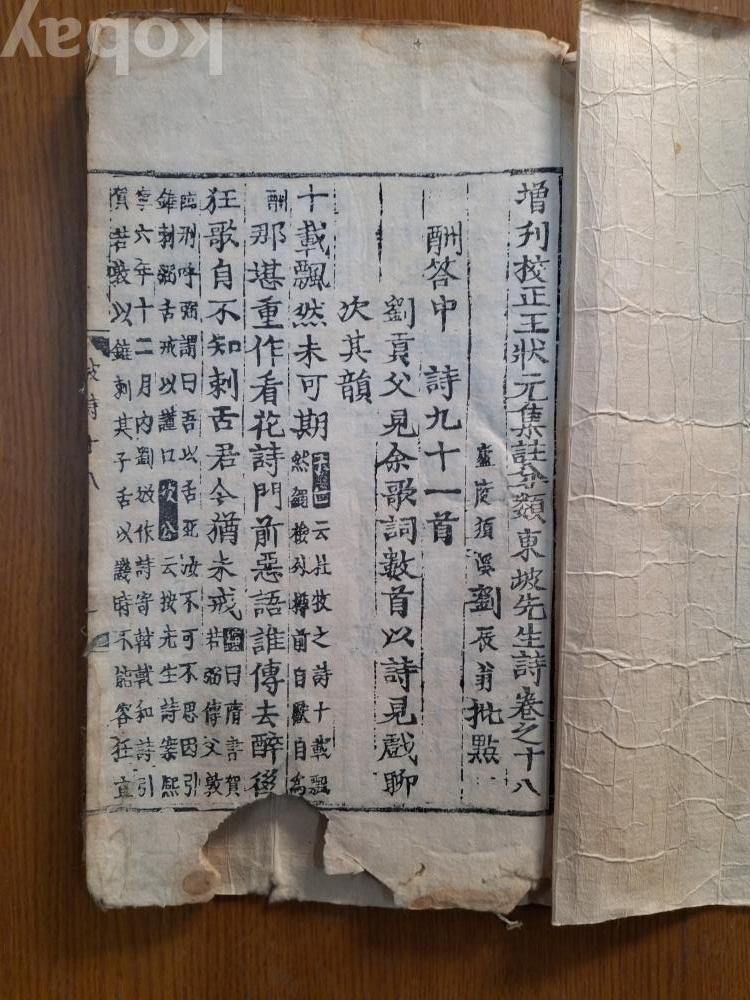 kobay
增刊校正王狀元集註分類東坡先生詩卷之十八
廬陵須溪劉辰翁批點
酬答中 詩九十一首
劉貢父見余歌詞數首以詩見戲聊
次其韻
十載飄然未可期
云杜牧之詩十載飄
然繩檢外樽前自獻自爲
酬
那堪重作看花詩門前惡語誰傳去醉後
狂歌自不知刺舌君今猶未戒
曰隋書賀
若弼傳父敦
臨刑呼弼謂曰吾以舌死汝不可不思因引
錐刺弼舌戒以謹口次公云按先生詩案熙
寧六年十二月內劉攽作詩寄軾軾和詩引
賀若敦以錐刺其子舌以譏時不能容狂直
坡詩十八